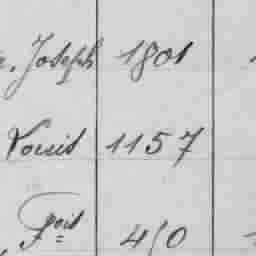 Joseph 1801
Louis 1157
Fçois 450